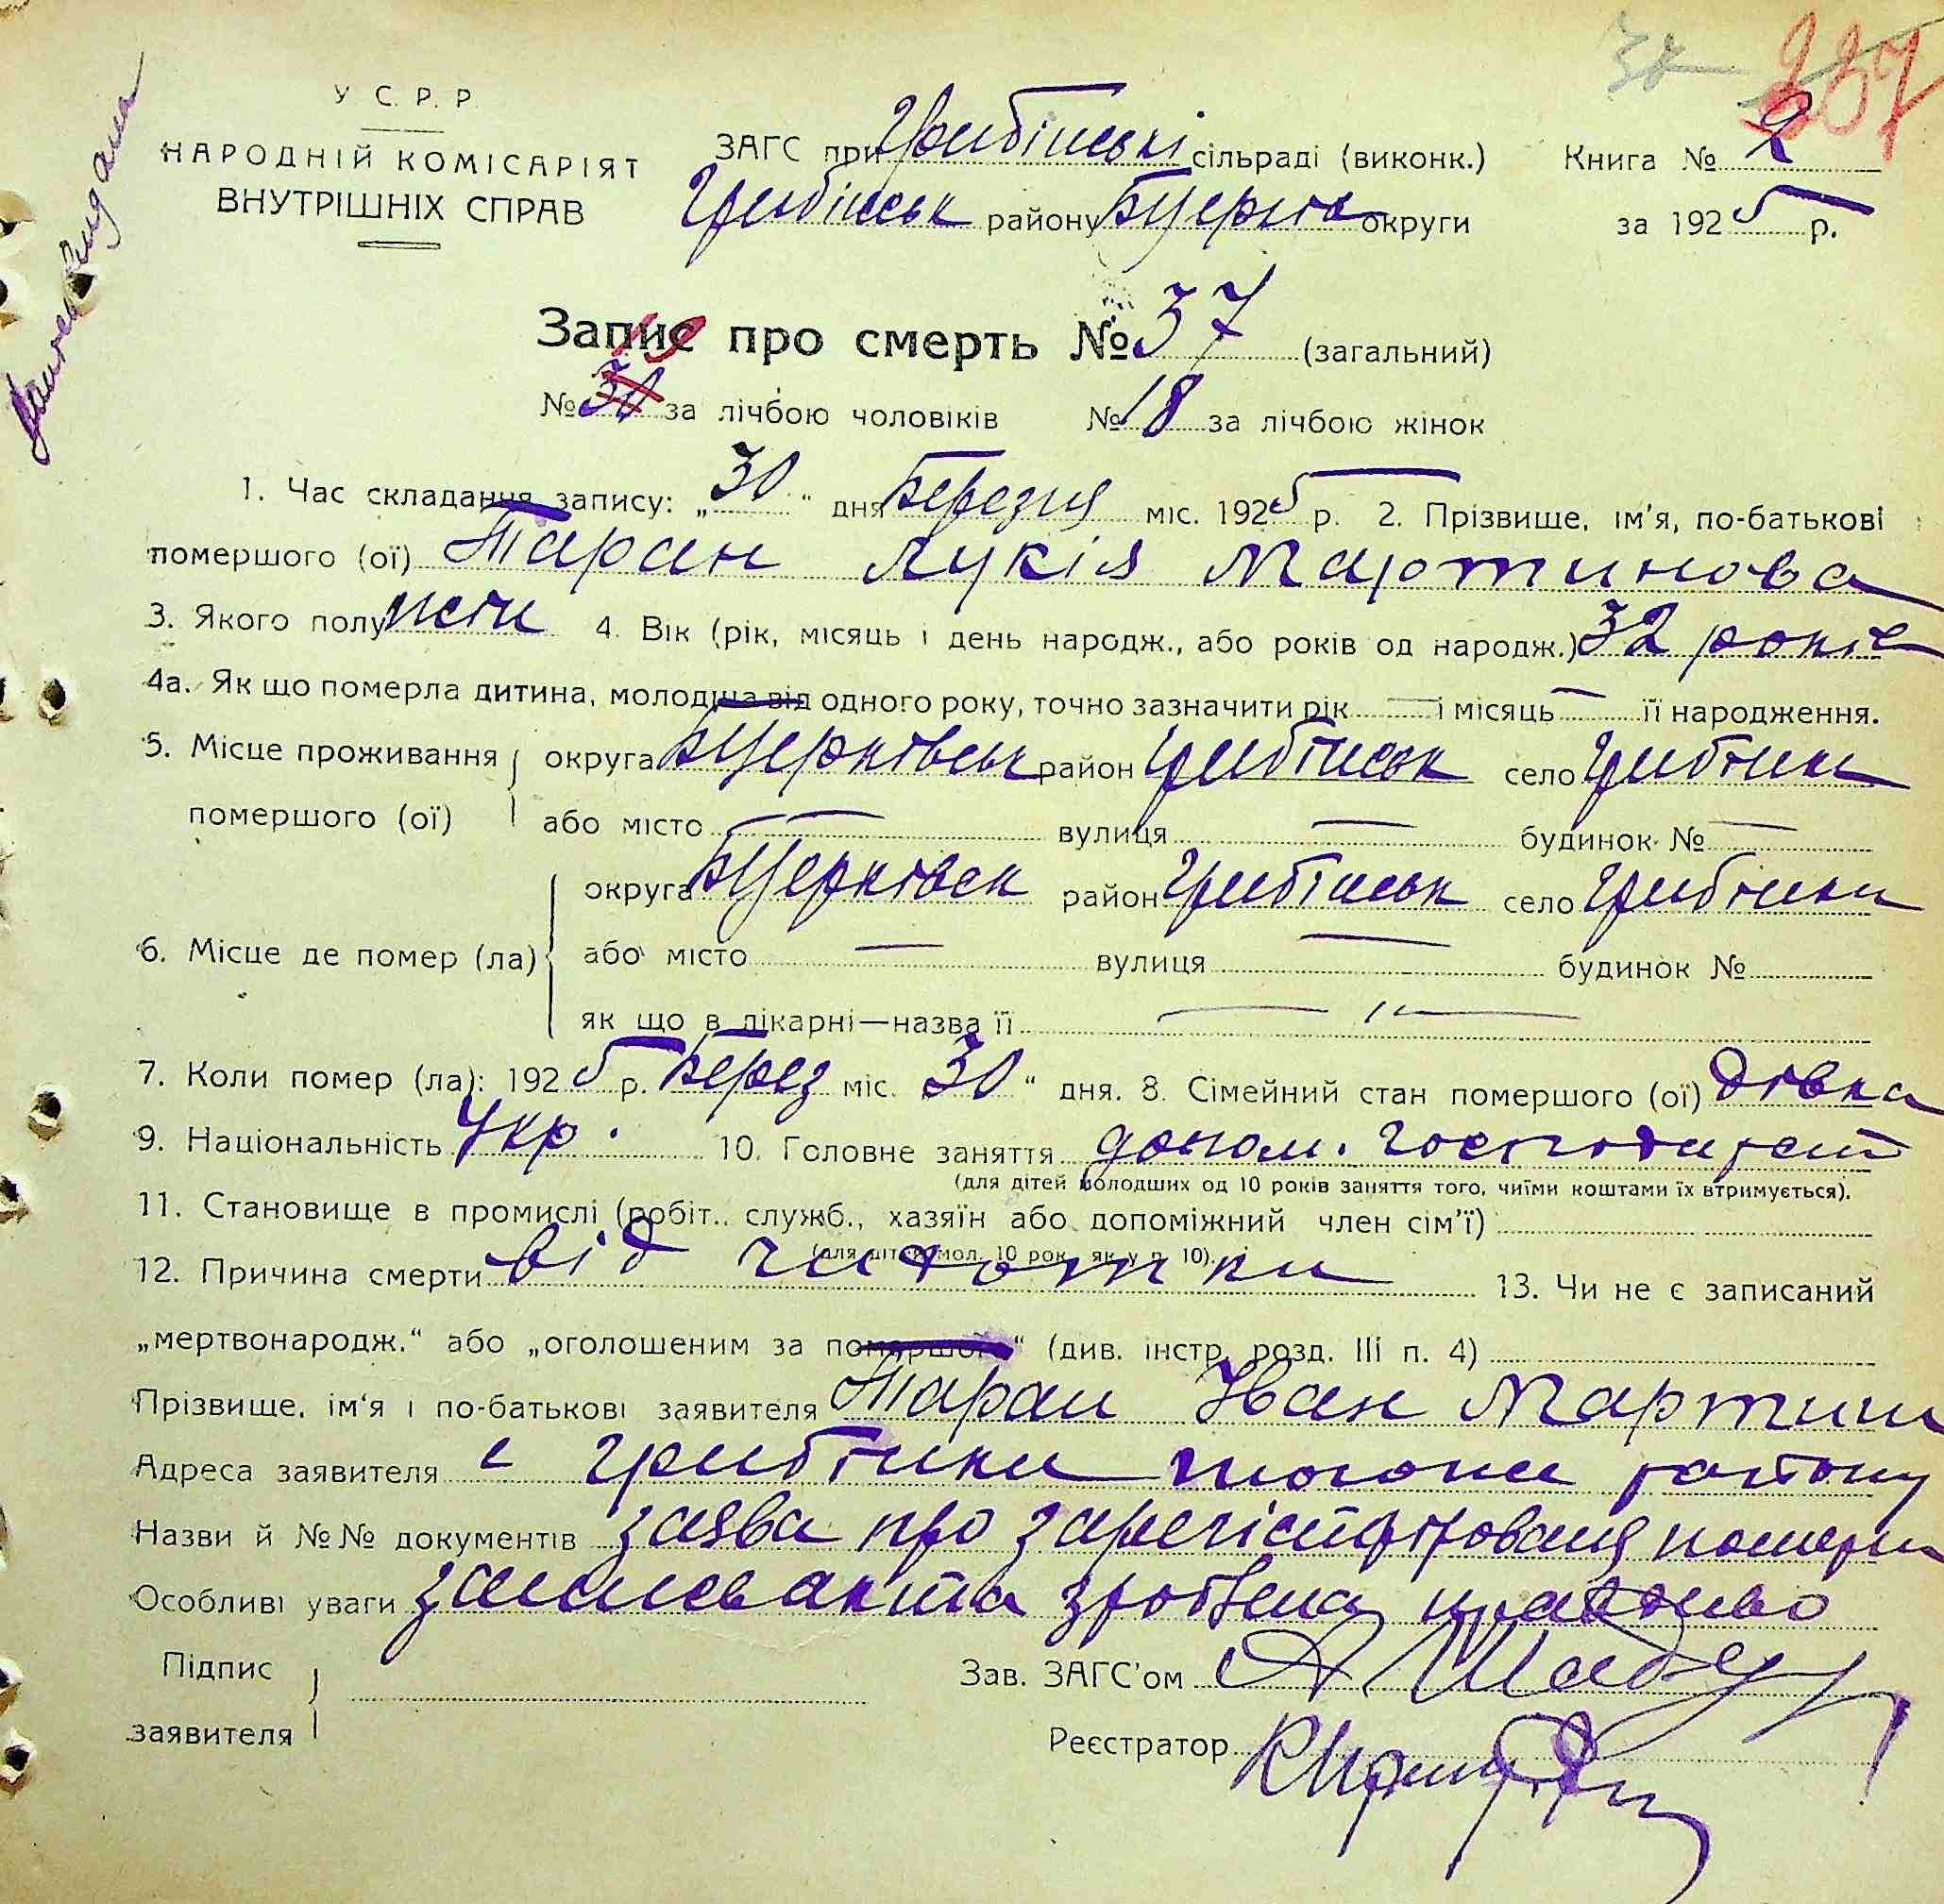 37 237
У С. Р. Р
НАРОДНІЙ КОМІСАРІЯТ
ВНУТРІШНІХ СПРАВ
ЗАГС при Гребінські сільраді (виконк.)
Гребінськ району БЦерків округи
Книга № 2
за 1925 р.
Запис про смерть № 37 (загальний)
№ 30 19 за лічбою чоловіків № 18 за лічбою жінок
1. Час складання запису: „30“ дня Березня міс. 1925 р. 2. Прізвище, ім'я, по-батькові
помершого (ої) Таран Лукія Мартинова
3. Якого полу жін 4. Вік (рік, місяць і день народж., або років од народж.) 32 років
4а. Як що померла дитина, молодша від одного року, точно зазначити рік — і місяць — її народження.
5. Місце проживання округа БЦерківськ район Гребінськ село Гребінки
помершого (ої) або місто — вулиця — будинок № —
округа БЦерківськ район Гребінськ село Гребінки
6. Місце де помер (ла) або місто — вулиця — будинок №
як що в лікарні—назва її — " —
7. Коли помер (ла): 1925 р. Берез міс. 30 “ дня. 8. Сімейний стан помершого (ої) Дівка
9. Національність Укр. 10. Головне заняття допом. господарст
(для дітей молодших од 10 років заняття того, чиїми коштами їх втримується).
11. Становище в промислі (робіт., служб., хазяїн або допоміжний член сім'ї)
(для дітей мол. 10 рок. як у п. 10).
12. Причина смерти від чахотки 13. Чи не є записаний
„мертвонародж.“ або „оголошеним за помершого“ (див. інстр. розд. III п. 4)
Прізвище, ім'я і по-батькові заявителя Таран Іван Мартин
Адреса заявителя с Гребінки того ж району
Назви й №№ документів заява про зарегістріровання
Особливі уваги запись акта зроблена правдиво
Підпис
заявителя
Зав. ЗАГС'ом
Реєстратор